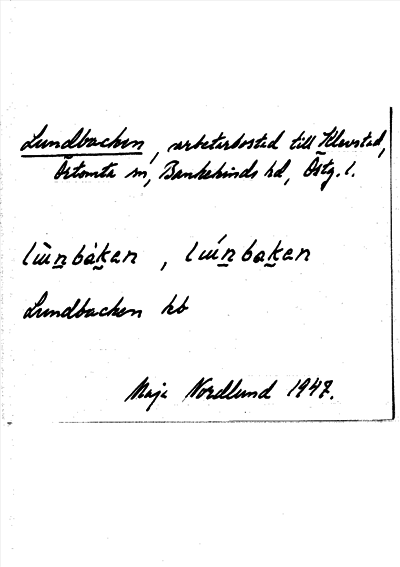 Lundbacken, arbetarbostad till Klevstad,
Örtomta sn, Bankekinds hd, Östg. l.
lɯ̀n̠bàk̬an , lɯ́n̠bak̬an
Lundbacken kb
Maja Nordlund 1947.